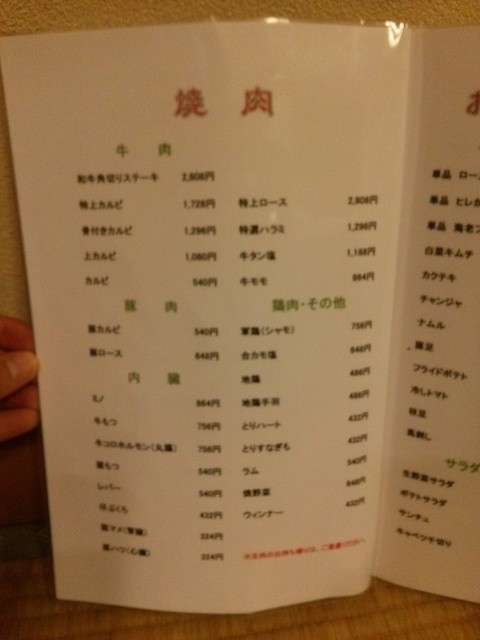 焼肉
牛肉
和牛角切りステーキ 2,808円
特上カルビ 1,728円
骨付きカルビ 1,296円
上カルビ 1,080円
カルビ 540円
特上ロース 2,808円
特選ハラミ 1,296円
牛タン塩 1,188円
牛モモ 864円
豚肉
豚カルビ 540円
豚ロース 648円
内臓
ミノ 864円
牛もつ 756円
牛コロホルモン(丸腸) 756円
豚もつ 540円
レバー 540円
ほぶくろ 432円
豚マメ(腎臓) 324円
豚ハツ(心臓) 324円
鶏肉・その他
軍鶏(シャモ) 756円
合カモ塩 648円
地鶏 486円
地鶏手羽 486円
とりハート 432円
とりすなぎも 432円
ラム 540円
焼野菜 648円
ウィンナー 432円
※生肉のお持ち帰りは、ご遠慮ください。
お
単品 ロー
単品 ヒレ
単品 海老フ
白菜キムチ
カクテキ
チャンジャ
ナムル
豚足
フライドポテト
冷しトマト
枝豆
馬刺し
サラダ
生野菜サラダ
ポテトサラダ
サンチュ
キャベツ千切り